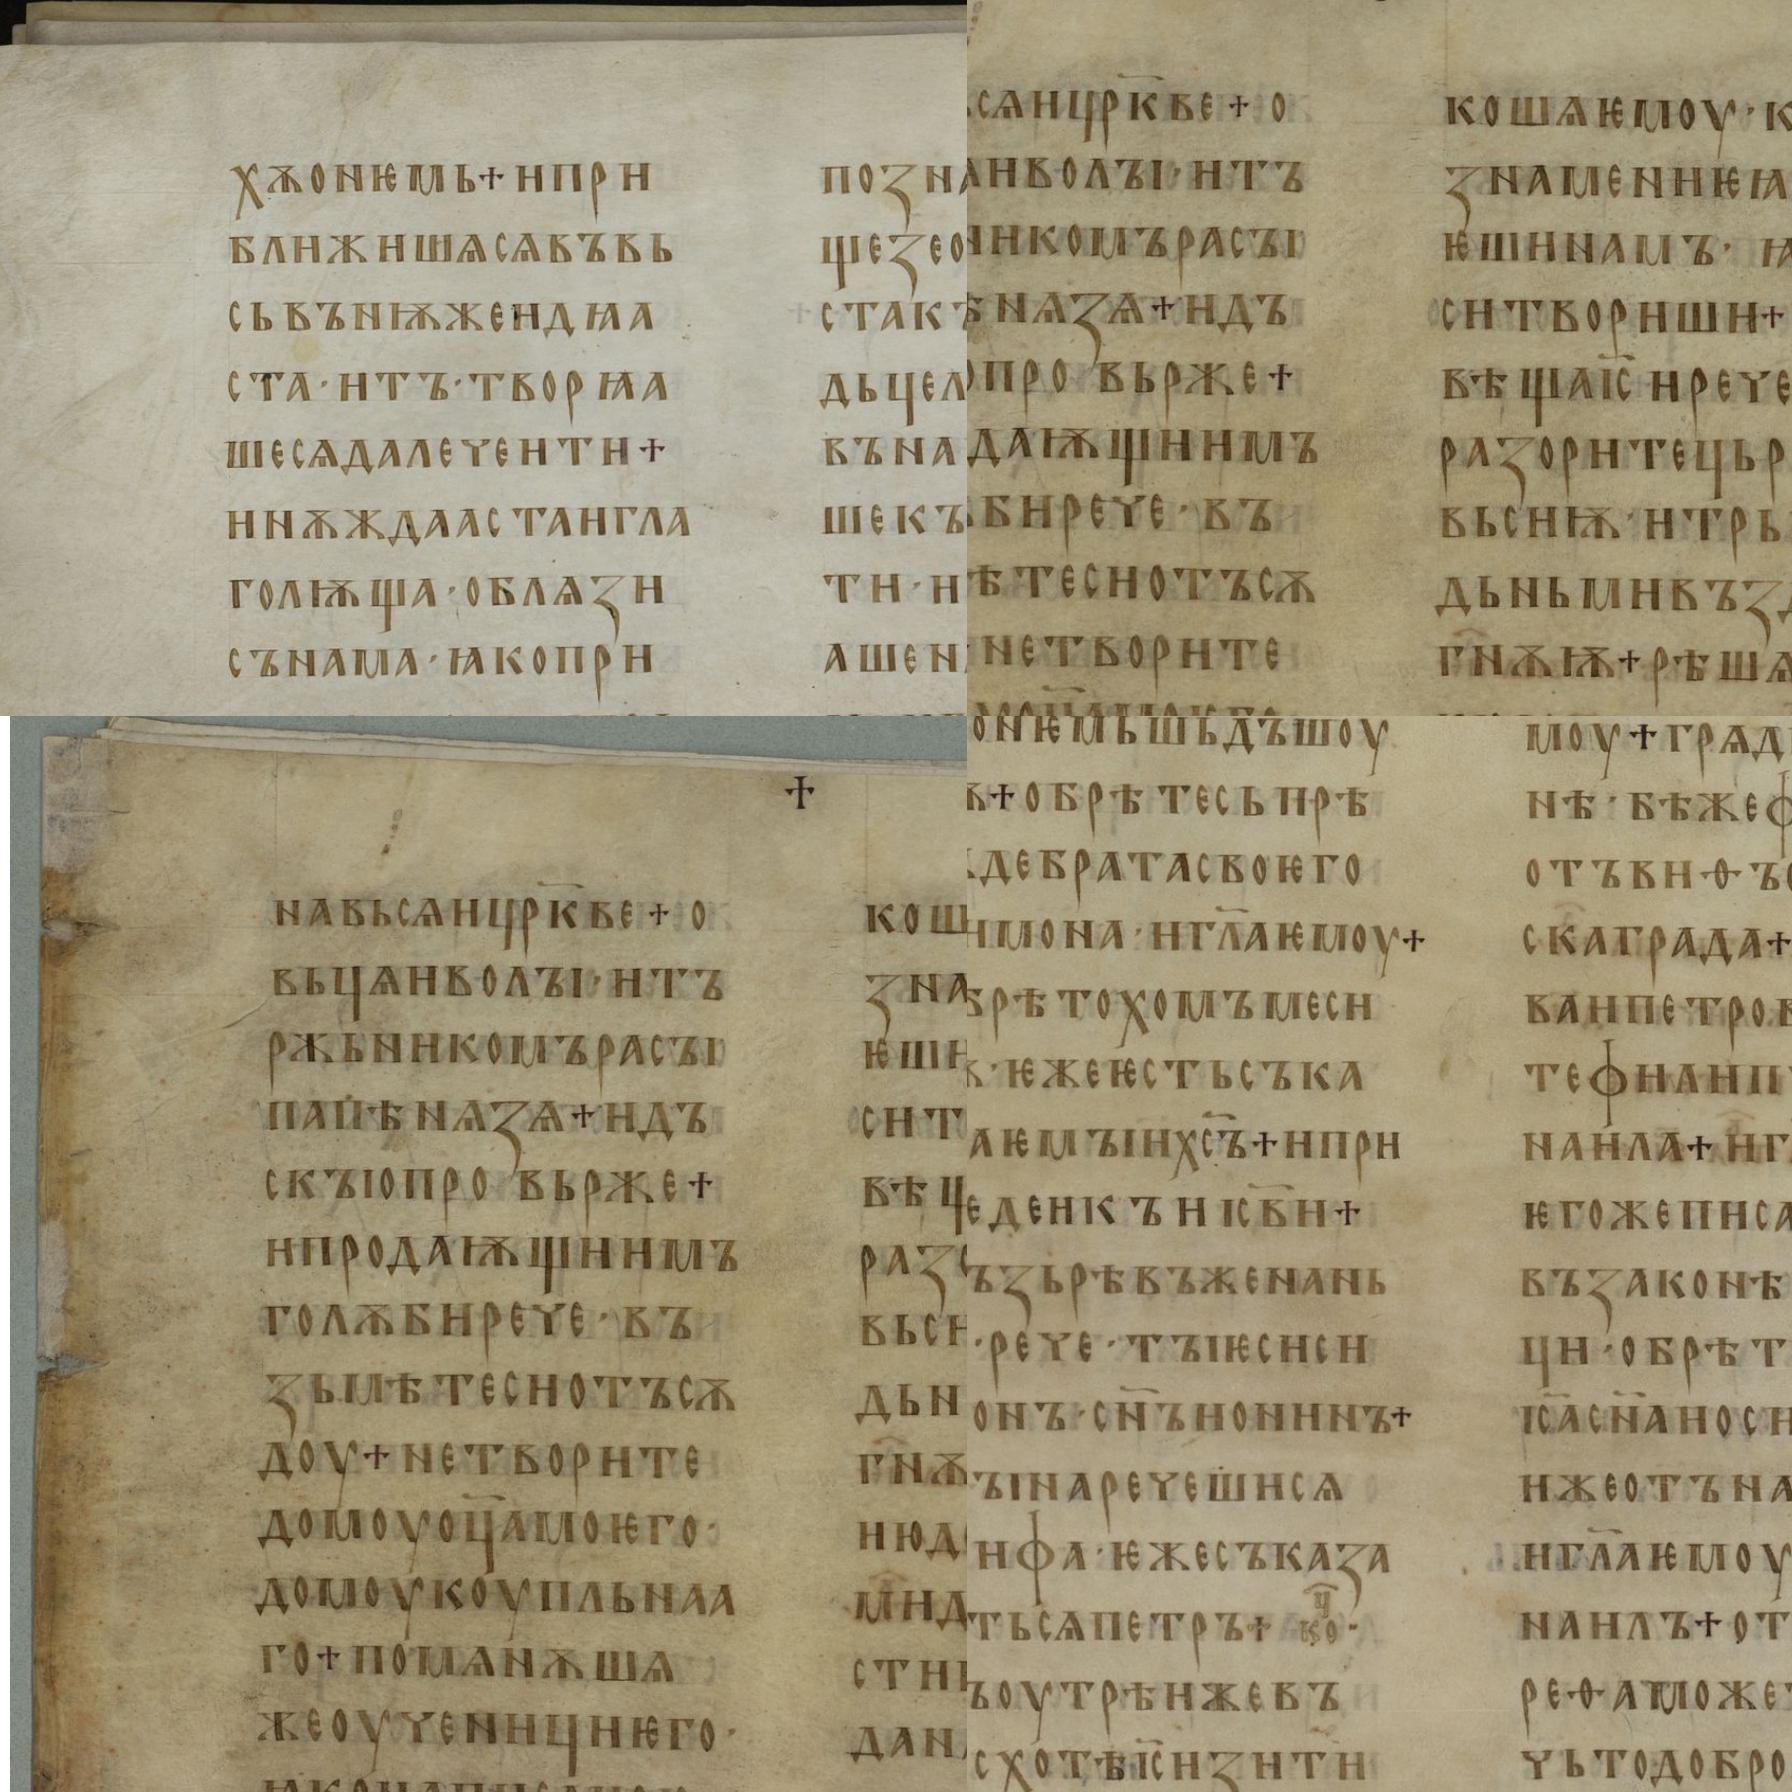 хѫонѥмь+нпрн
блнжншѧсѧвъвь
сьвънѭжендꙗа
ста·нтъ·творꙗа
шесѧдалеченти+
ннѫждаастангла
голѭща·облѧзн
сънама·ꙗкопрн
позна
щезео
стакъ
дьцел
въна
шекъ
тн·н
ашен
сѧнцр҃кве+о
анволъı·нтъ
ннкомърасъı
ѣнѧзѧ+ндъ
опро вьрже+
даѭщннмъ
бнрече·въ
ѣтеснотъсѫ
нетворнте
кошѧѥмоу·к
знаменнѥꙗ
ѥшннамъ·ꙗ
снтворншн+
вѣщаіс҃нрече
разорнтецьр
вьснѭ·нтрь
дьньмнвъзд
гн҃ѫѭ+рѣшѧ
+
навьсѧнцр҃кве+о
вьцѧнволъı·нтъ
ржьннкомърасъı
папѣнѧзѧ+ндъ
скъıопро вьрже+
нпродаѭщннмъ
голѫбнрече·въ
зьмѣтеснотъсѫ
доу+нетворнте
домоуоц҃амоѥго·
домоукоупльнаа
го+помѧнѫшѧ
жеоученнцнѥго·
кош
зна
ѥшн
снт
вѣщ
раз
вьсн
дьн
гн҃ѫ
нюд
мнд
стн
дан
онѥмьшьдъшоу
+обрѣтесьпрѣ
дебратасвоѥго
нмона·нгл҃аѥмоу+
брѣтохомъмесн
·ѥжеѥстьсъка
аѥмъıнхс҃ъ+нпрн
еденкъніс҃вн+
ъзьрѣвъженань
·рече·тъıѥснсн
онъ·сн҃ънонннъ+
ъınаречешнсѧ
нфа·ѥжесъказа
тьсѧпетръ+ ко҃ц·
ъоутрѣнжевъ
схотѣіс҃нзнтн
моу+грѧд
нѣ·бѣжеф
отъвнѳъс
скаграда+
ванпетров
тефнанп
нанла+нг
ѥгожепнса
възаконѣ
цн·обрѣт
іс҃асн҃анос
нжеотъна
нгл҃аѥмоу
нанлъ+от
реѳаможе
чьтодобро